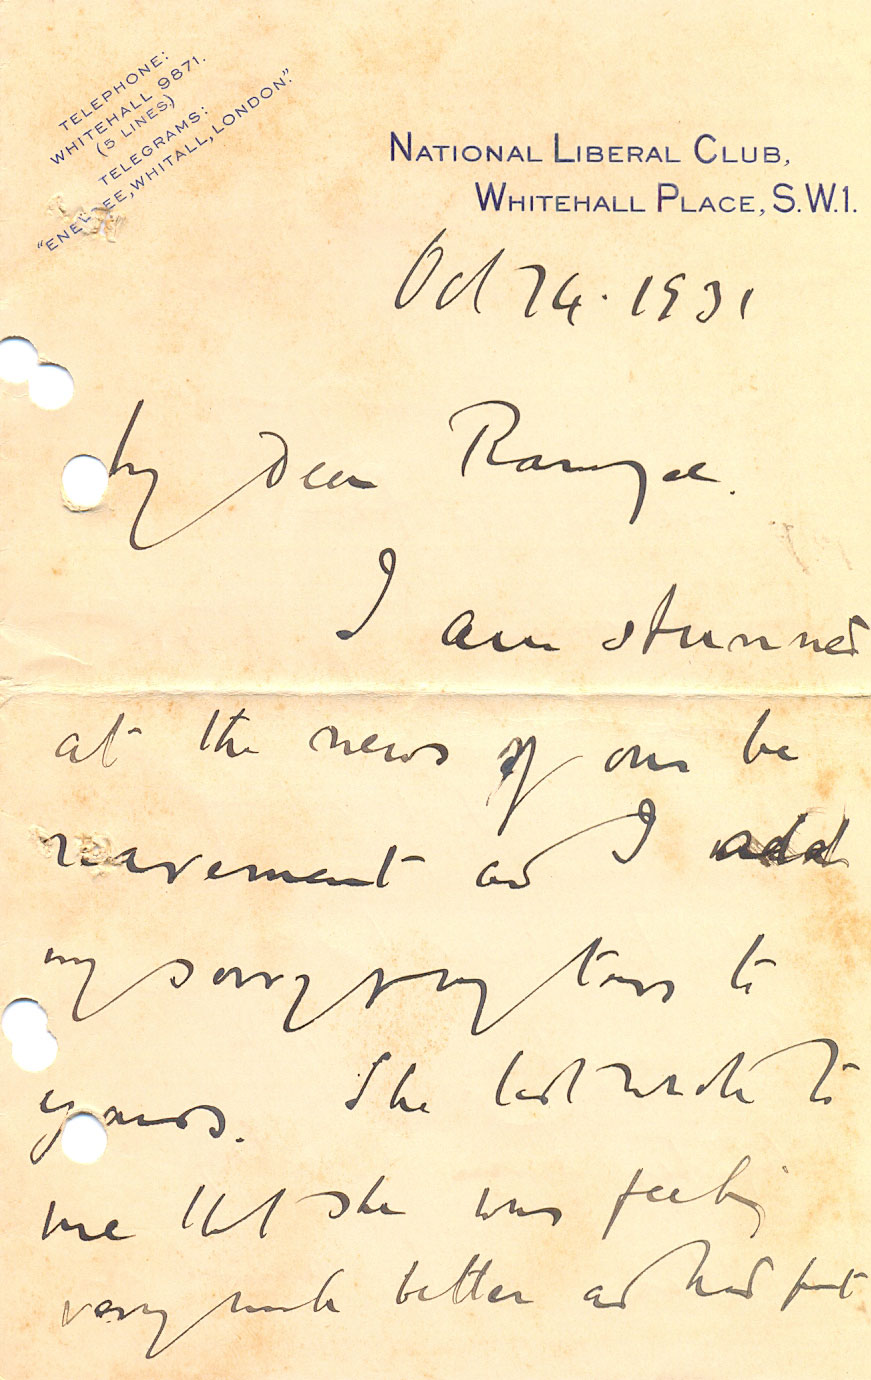 TELEPHONE:
WHITEHALL 9871.
(5 LINES)
TELEGRAMS:
"ENELCEE, WHITALL, LONDON."
NATIONAL LIBERAL CLUB,
WHITEHALL PLACE, S.W.1.
Oct 24. 1931
My Dear
I am stunned
at the news of our be
reavement and I add
my sorrowing tears to
yours. She last wrote to
me that she was feeling
very much better and had put